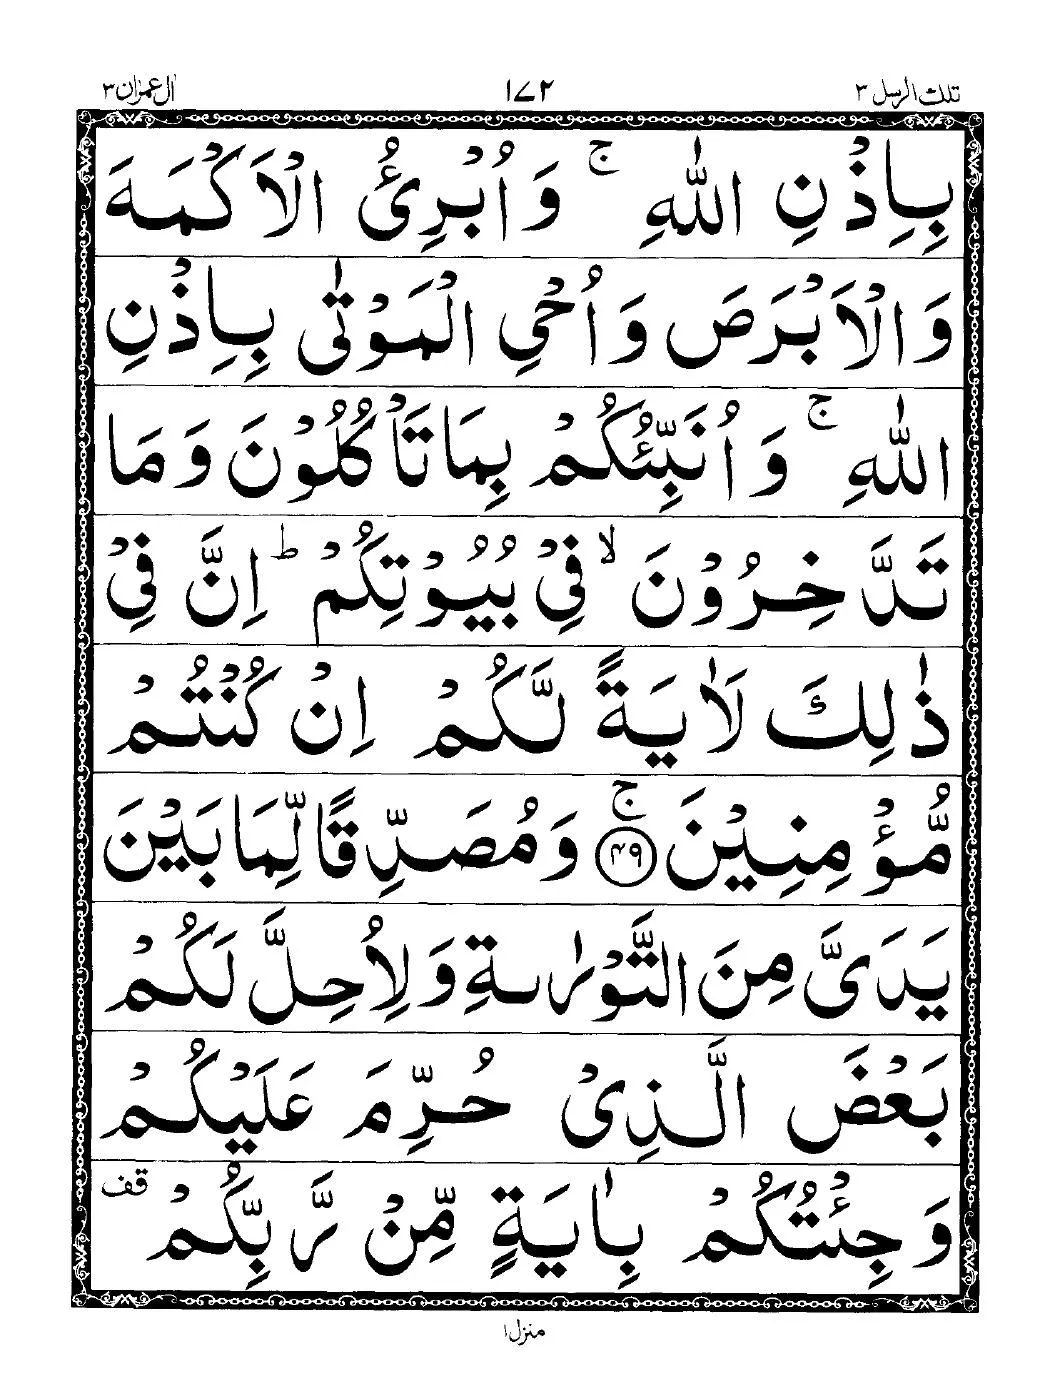 تلك الرسل ٣
١٧٢
اٰل عمرٰن ٣
بِاِذْنِ اللّٰهِ ۚ وَاُبْرِئُ الْاَكْمَهَ
وَالْاَبْرَصَ وَاُحْيِ الْمَوْتٰى بِاِذْنِ
اللّٰهِ ۚ وَاُنَبِّئُكُمْ بِمَا تَاْكُلُوْنَ وَمَا
تَدَّخِرُوْنَ ۙ فِيْ بُيُوْتِكُمْ ؕ اِنَّ فِيْ
ذٰلِكَ لَاٰيَةً لَّكُمْ اِنْ كُنْتُمْ
مُّؤْمِنِيْنَ ۚ ﴿۴۹﴾ وَمُصَدِّقًا لِّمَا بَيْنَ
يَدَيَّ مِنَ التَّوْرٰىةِ وَلِاُحِلَّ لَكُمْ
بَعْضَ الَّذِيْ حُرِّمَ عَلَيْكُمْ
وَجِئْتُكُمْ بِاٰيَةٍ مِّنْ رَّبِّكُمْ قف
منزل ١